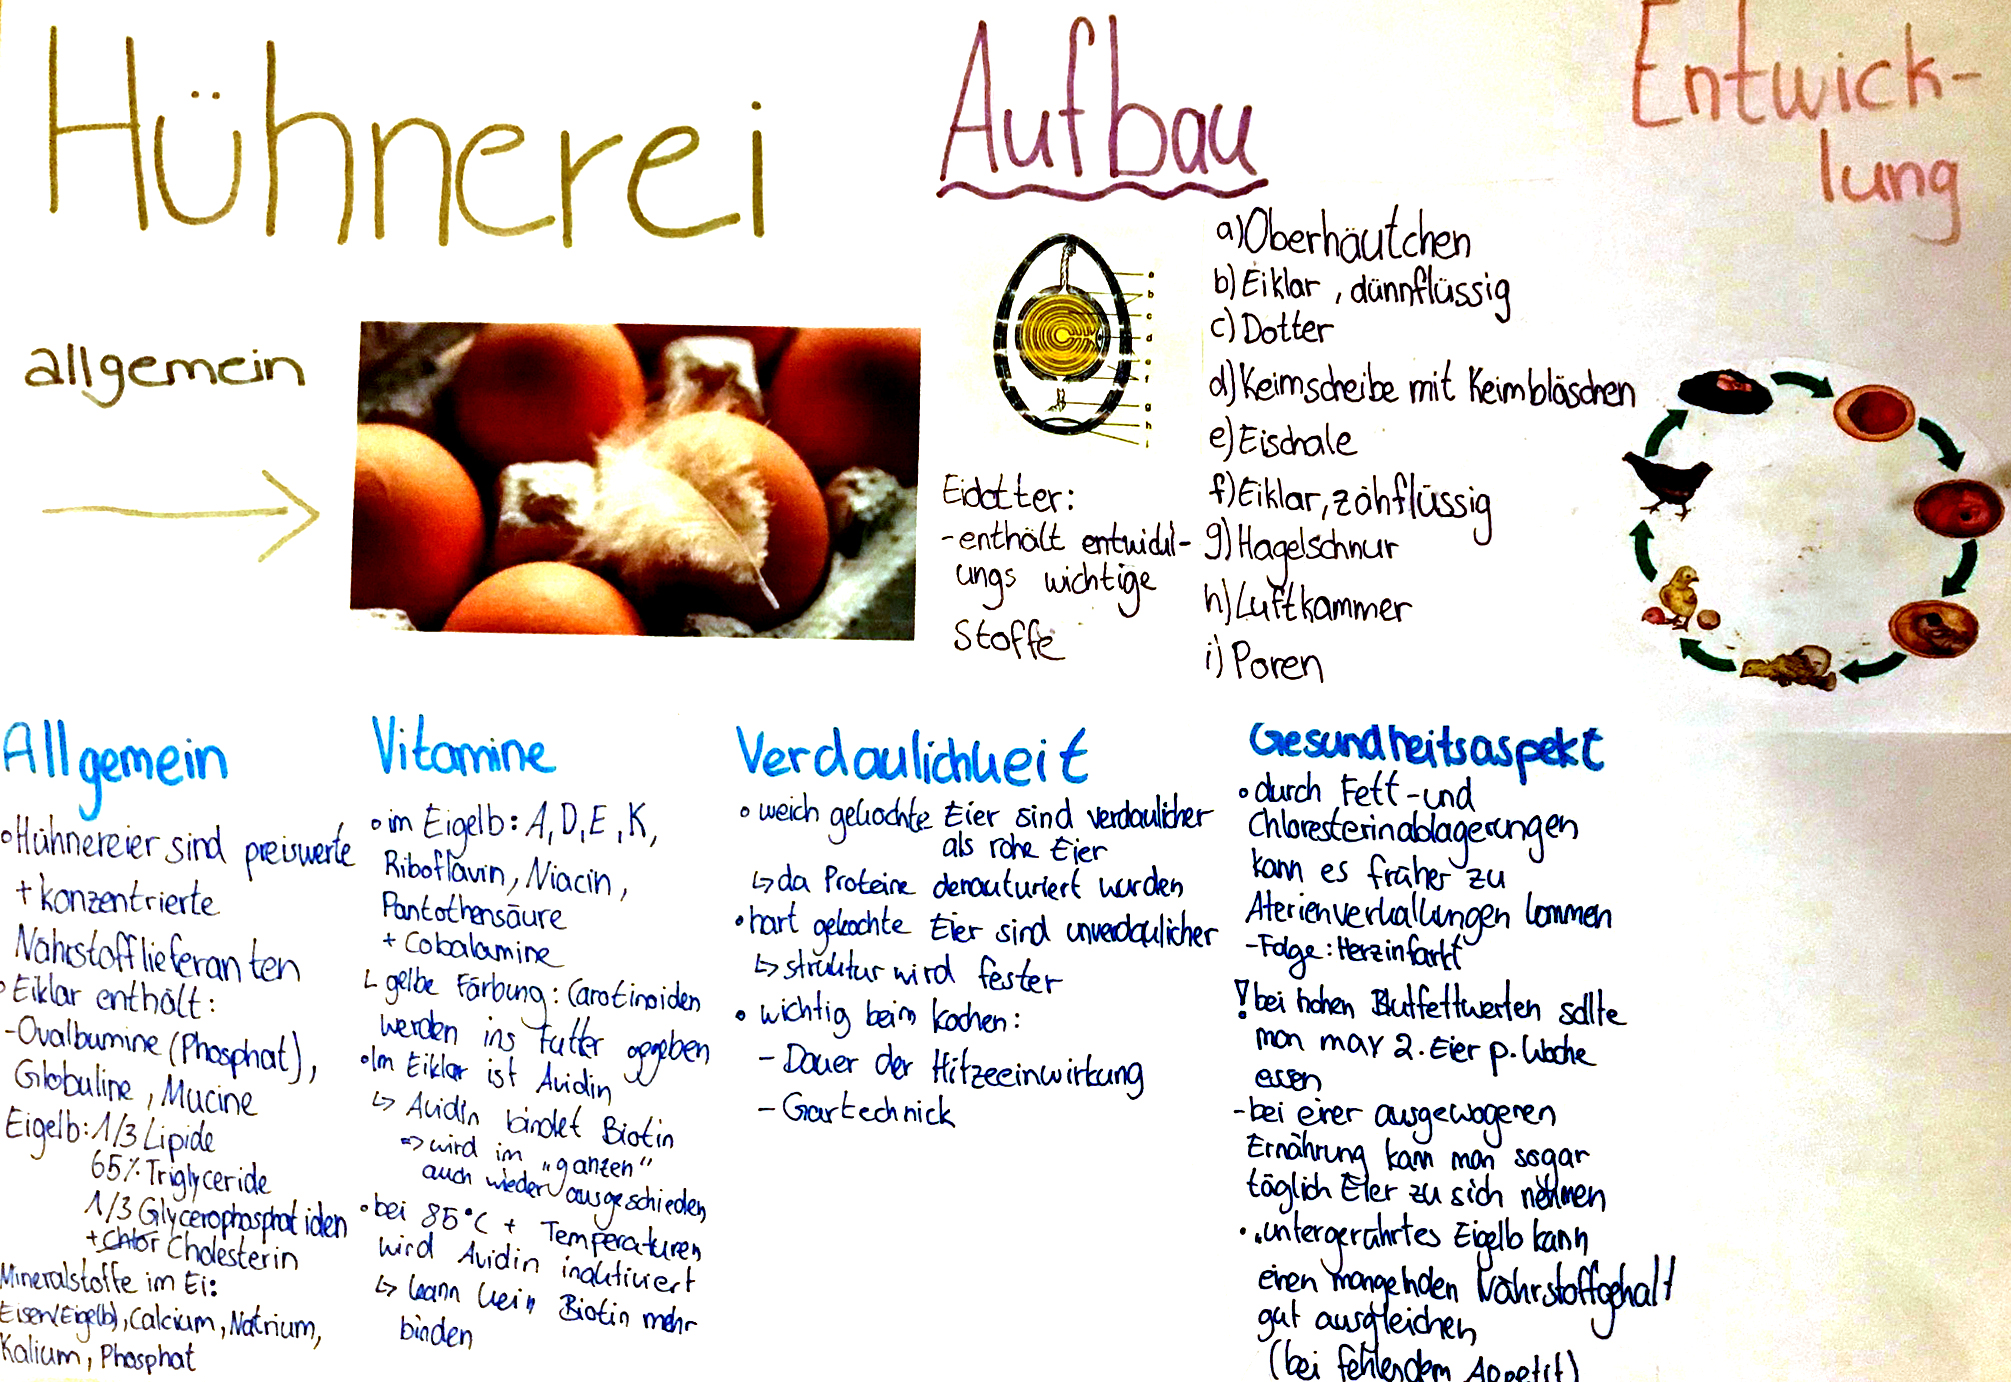 Hühnerei
allgemein
Aufbau
a) Oberhäutchen
b) Eiklar, dünnflüssig
c) Dotter
d) Keimscheibe mit Keimbläschen
e) Eischale
f) Eiklar, zähflüssig
g) Hagelschnur
h) Luftkammer
i) Poren
a
b
c
d
e
f
g
h
i
Eidotter:
- enthält entwickl-
ungs wichtige
Stoffe
Entwick-
lung
Allgemein
• Hühnereier sind preiswerte
+ konzentrierte
Nährstofflieferanten
• Eiklar enthält:
- Ovalbumine (Phosphat),
Globuline, Mucine
Eigelb: 1/3 Lipide
65% Triglyceride
1/3 Glycerophosphatiden
+ Chlor Cholesterin
Mineralstoffe im Ei:
Eisen(Eigelb), Calcium, Natrium,
Kalium, Phosphat
Vitamine
• im Eigelb: A, D, E, K,
Riboflavin, Niacin,
Pantothensäure
+ Cobalamine
↳ gelbe Färbung: Carotinoiden
werden ins Futter gegeben
• Im Eiklar ist Avidin
↳ Avidin bindet Biotin
⇒ wird im "ganzen"
auch wieder ausgeschieden
• bei 85°C + Temperaturen
wird Avidin inaktiviert
↳ kann kein Biotin mehr
binden
Verdaulichkeit
• weich gekochte Eier sind verdaulicher
als rohe Eier
↳ da Proteine denauturiert wurden
• hart gekochte Eier sind unverdaulicher
↳ struktur wird fester
• wichtig beim kochen:
- Dauer der Hitzeeinwirkung
- Gartechnick
Gesundheitsaspekt
• durch Fett-und
Chloresterinablagerungen
kann es früher zu
Aterienverkalkungen kommen
- Folge: Herzinfarkt
! bei hohen Blutfettwerten sollte
man max 2. Eier p. Woche
essen
- bei einer ausgewogenen
Ernährung kann man sogar
täglich Eier zu sich nehmen
• untergerührtes Eigelb kann
einen mangelnden Nährstoffgehalt
gut ausgleichen
(bei fehlendem Appetit)